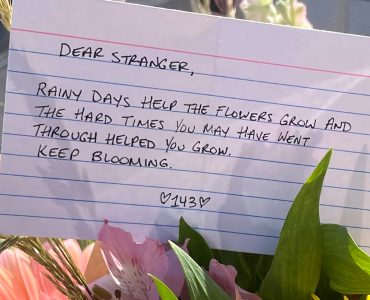 DEAR STRANGER,
RAINY DAYS HELP THE FLOWERS GROW AND
THE HARD TIMES YOU MAY HAVE WENT
THROUGH HELPED YOU GROW.
KEEP BLOOMING.
♡143♡